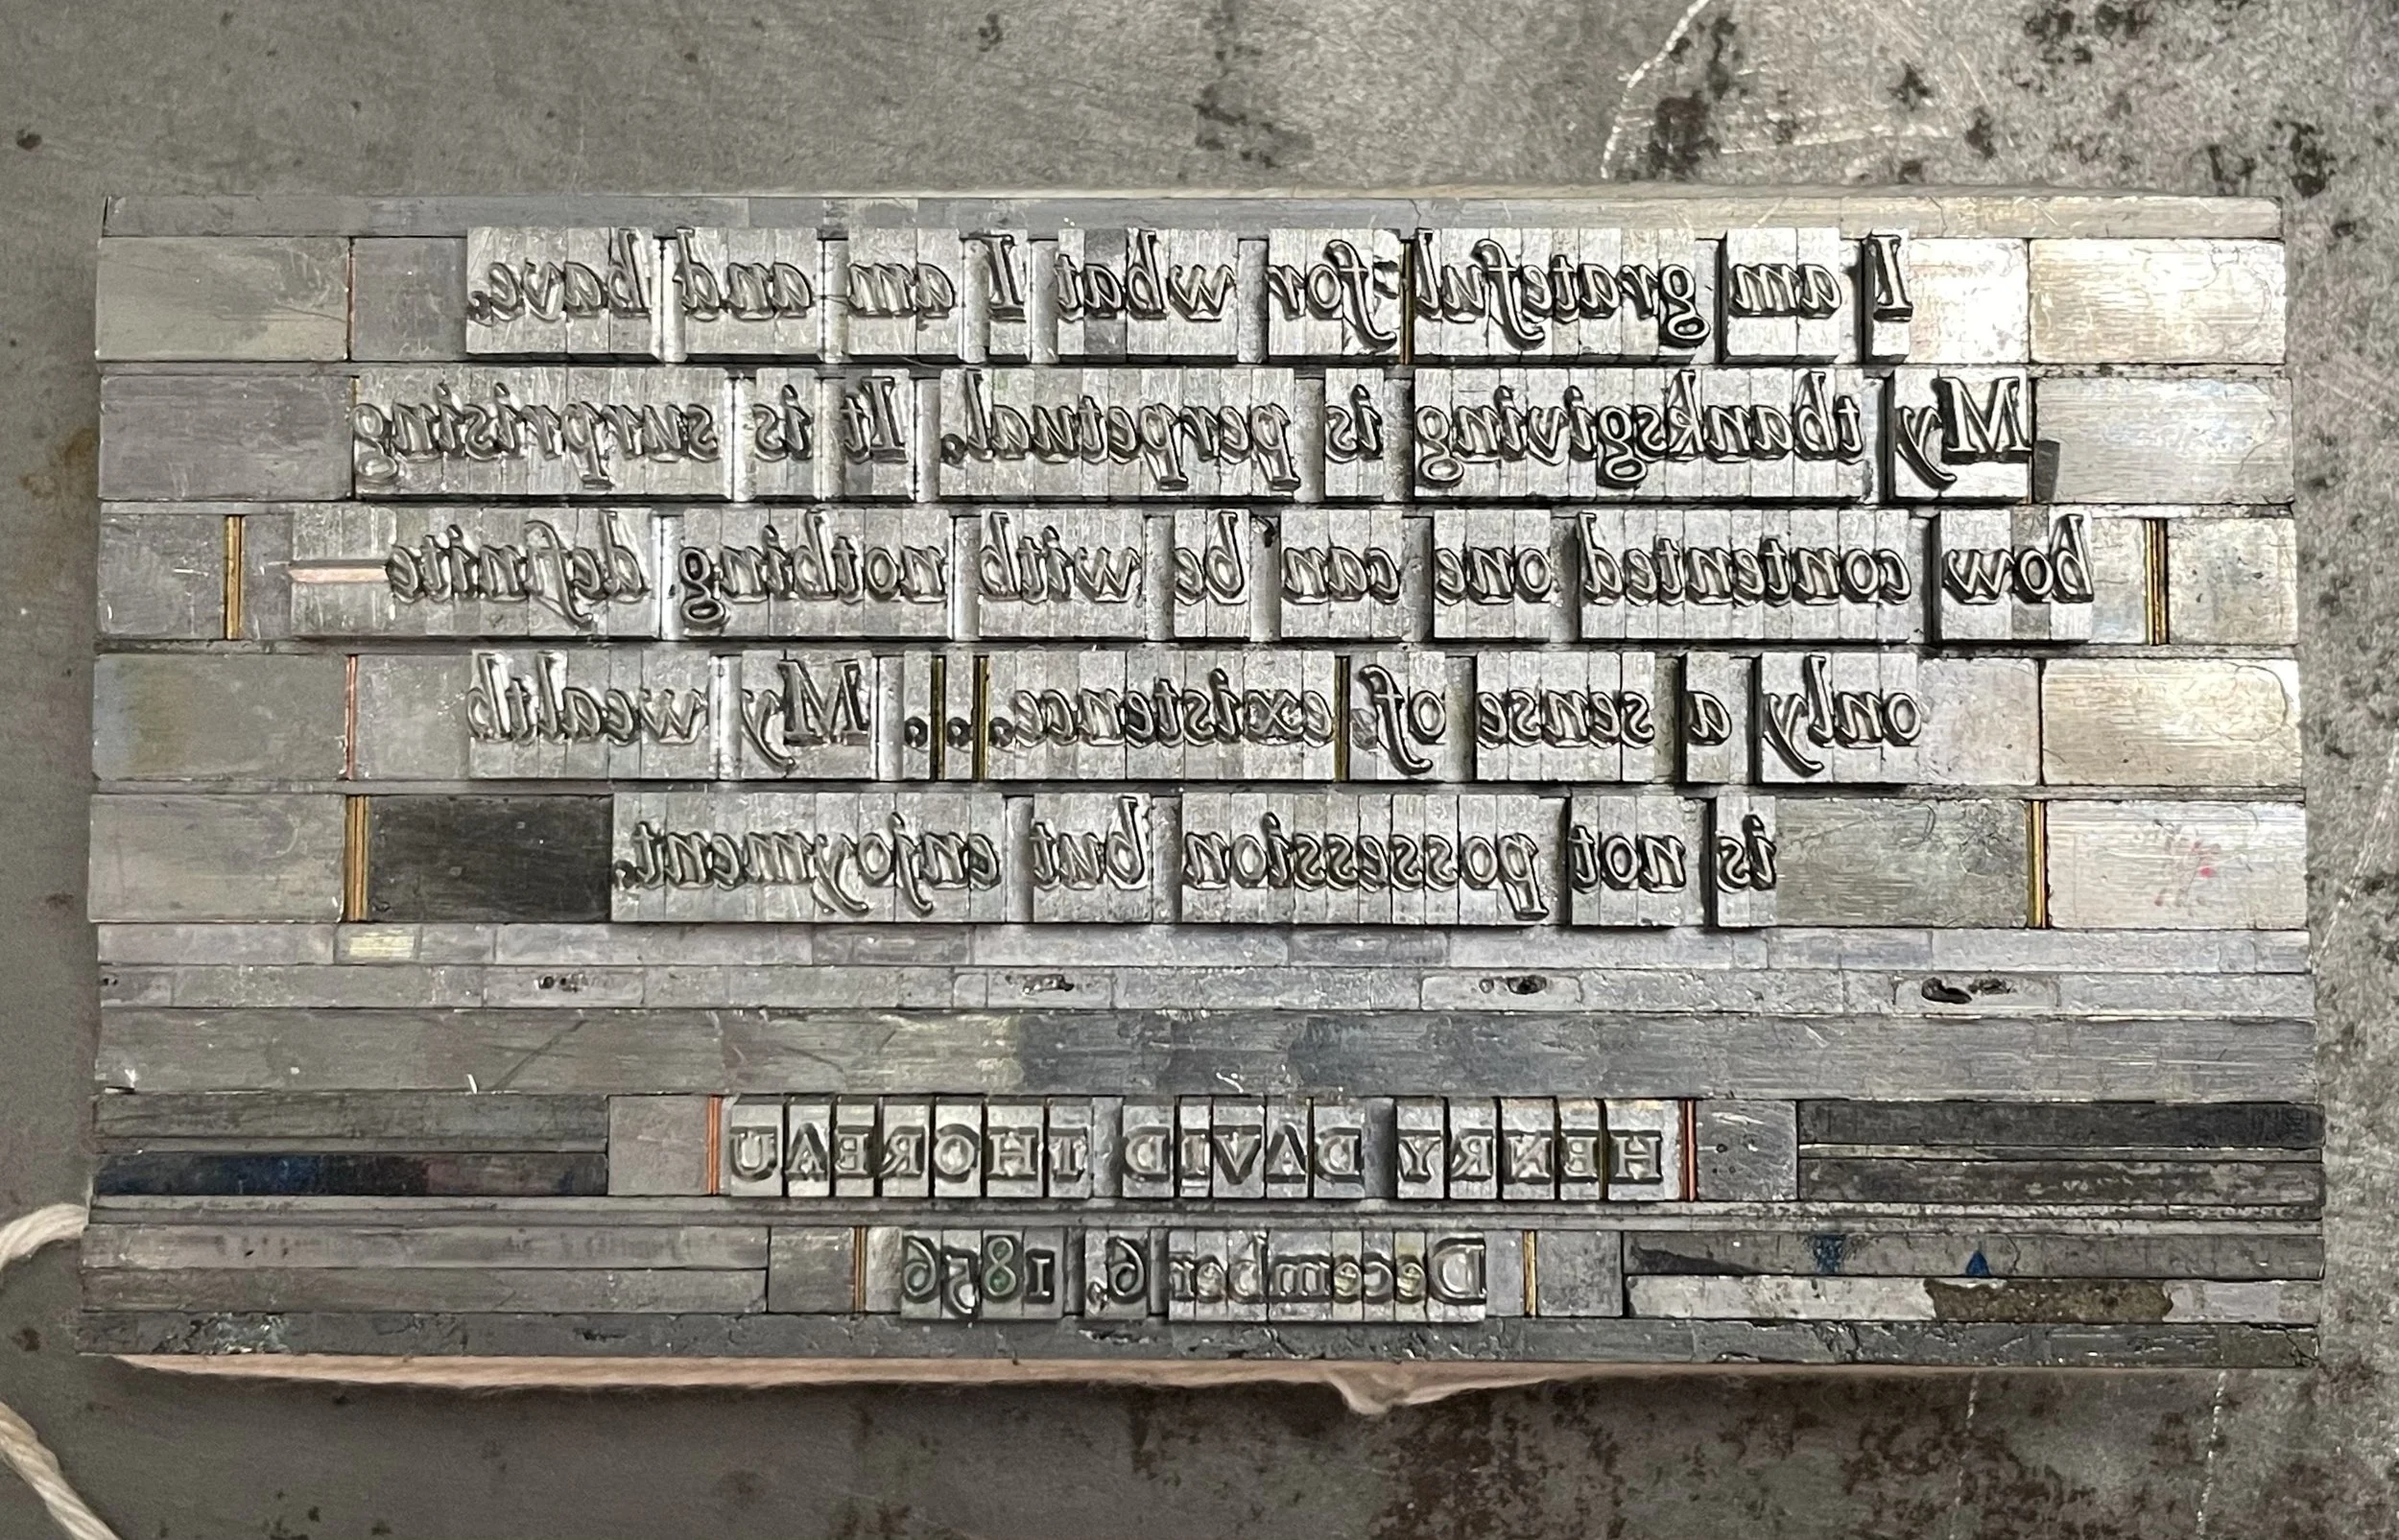 I am grateful for what I am and have.
My thanksgiving is perpetual. It is surprising
how contented one can be with nothing definite—
only a sense of existence... My wealth
is not possession but enjoyment.
HENRY DAVID THOREAU
December 6, 1856